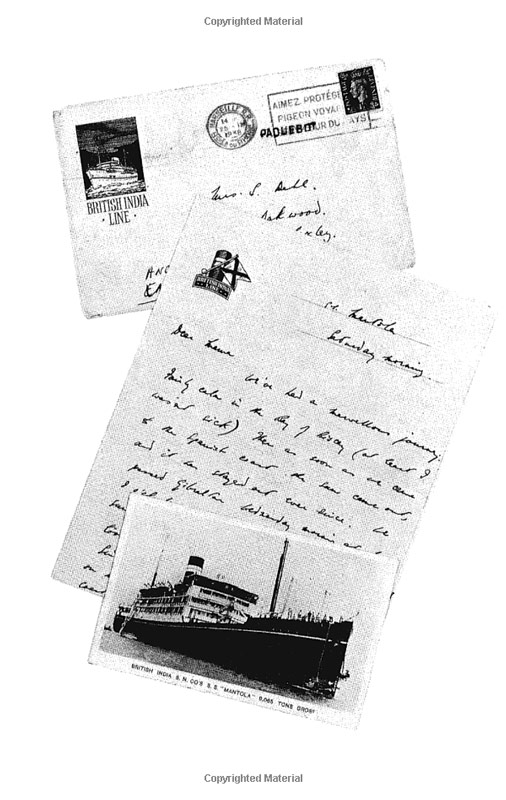 Copyrighted Material
MARSEILLE
1938
AIMEZ PROTÉGE
PIGEON VOYA
UR DU PAYS
PAQUEBOT
BRITISH INDIA
· LINE ·
Mrs. S. Dahl.
Oakwood.
Bexley.
BRITISH INDIA
LINE
S.S. Mantola
Saturday morning.
Dear Mama
We've had a marvellous journey.
Fairly calm in the Bay of Biscay (at least I
wasn't sick) Then as soon as we came
to the Spanish coast the sun came out,
and it has stayed out ever since. We
passed Gibraltar Wednesday morning at
BRITISH INDIA S. N. CO'S S. S. "MANTOLA" 9,065 TONS GROSS
Copyrighted Material